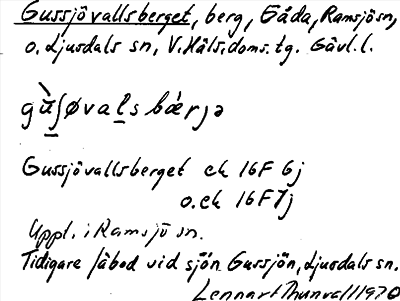 Gussjövallsberget, berg, Gåda, Ramsjö sn,
o. Ljusdals sn, V. Häls. doms. tg. Gävl. l.
gùʃøvals bǽrjə
Gussjövallsberget ek 16F 6j
o. ek 16F 7j
Uppl. i Ramsjö sn.
Tidigare fäbod vid sjön Gussjön, Ljusdals sn.
Lennart Thunvall 1970